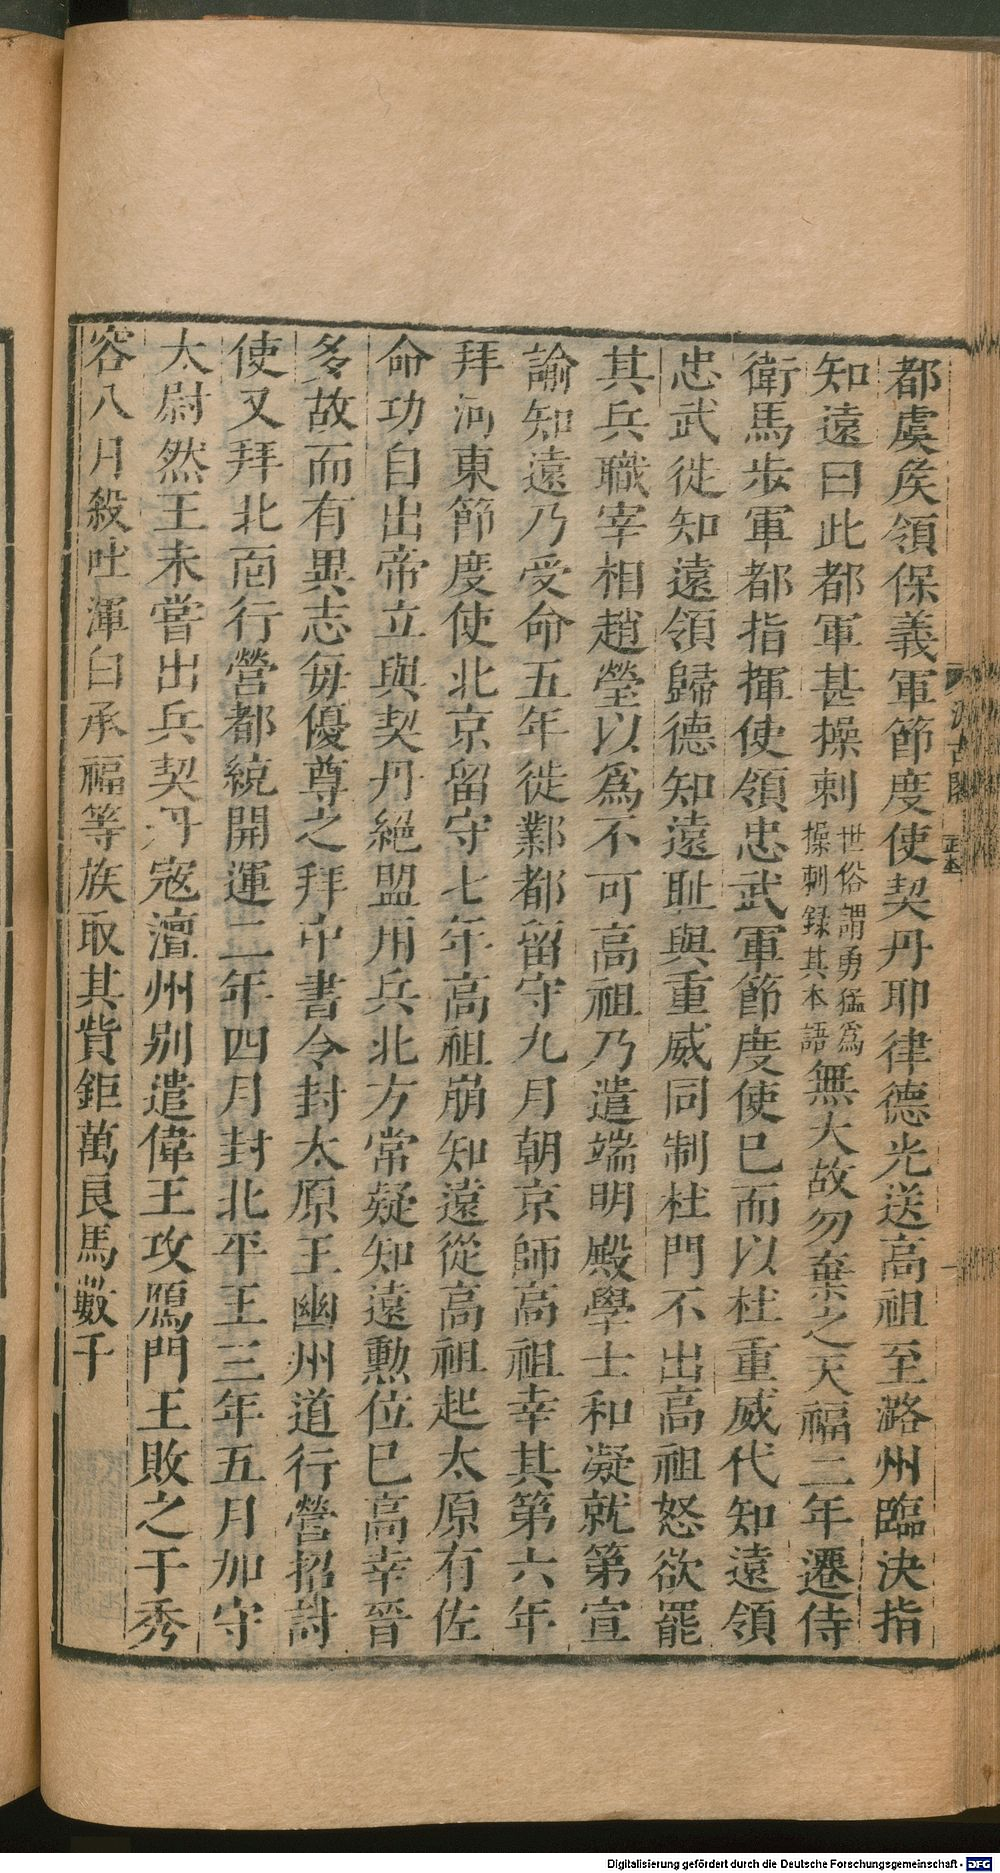 都虞矦領保義軍節度使契丹耶律德光送高祖至潞州臨決指
知遠曰此都軍甚操剌世俗謂勇猛爲操剌録其本語無大故勿棄之天福二年遷侍
衛馬歩軍都指揮使領忠武軍節度使已而以杜重威代知遠領
忠武徙知遠領歸德知遠耻與重威同制杜門不出高祖怒欲罷
其兵職宰相趙瑩以爲不可高祖乃遣端明殿學士和凝就第宣
諭知遠乃受命五年徙鄴都留守九月朝京師高祖幸其第六年
拜河東節度使北京留守七年高祖崩知遠從高祖起太原有佐
命功自出帝立與契丹絕盟用兵北方常疑知遠勲位已高幸晉
多故而有異志每優尊之拜中書令封太原王幽州道行營招討
使又拜北面行營都統開運二年四月封北平王三年五月加守
太尉然王未嘗出兵契丹寇澶州別遣偉王攻鴈門王敗之于秀
容八月殺吐渾白承福等族取其貲鉅萬良馬數千
Digitalisierung gefördert durch die Deutsche Forschungsgemeinschaft - DFG